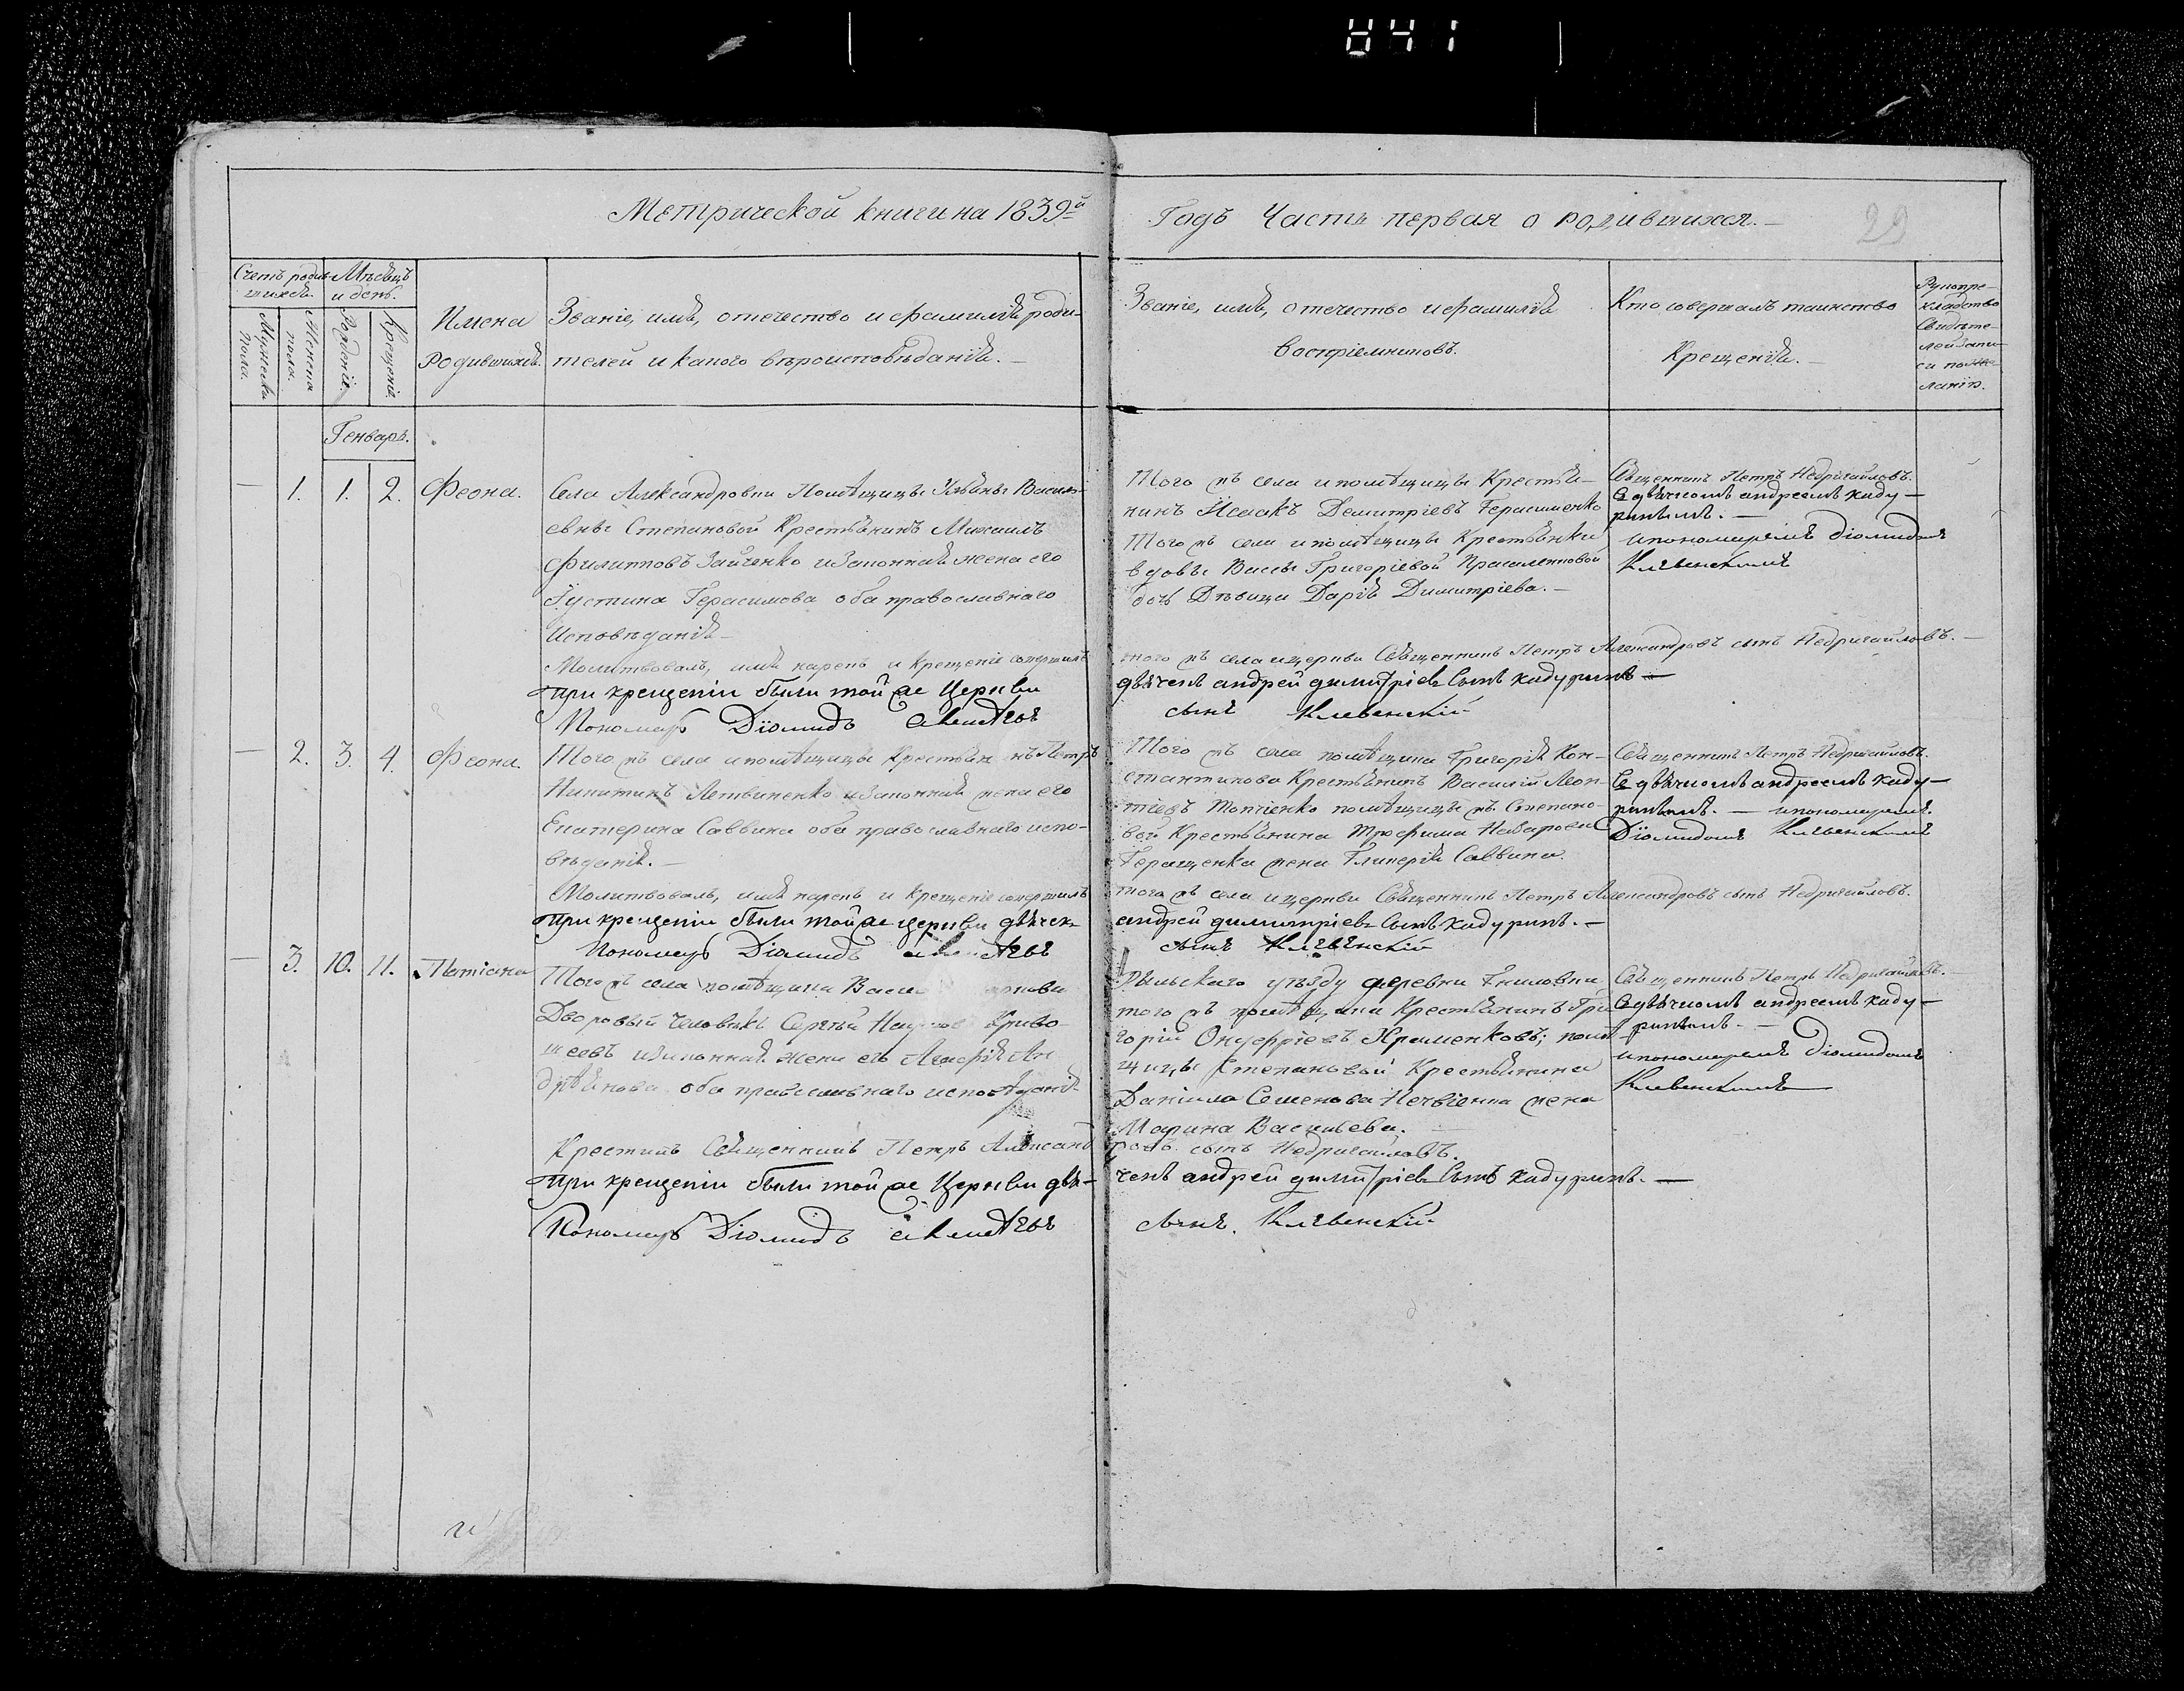 841
Метрической книги на 1839-й
Годъ Часть первая о родившихся.—
29
Счетъ родив-
шихся.
Мѣсяцъ
и день.
Мужеска
пола.
Женска
пола.
Рожденіе.
Крещеніе.
Имена
Родившихся.
Званіе, имя, отечество и фамилія роди-
телей и какого вѣроисповѣданія.—
Званіе, имя, отечество и фамилія
воспріемниковъ.
Кто совершалъ таинство
Крещенія.—
Рукопри-
кладство
Свидѣте-
лей запи-
си по же-
ланію.
Генварь.
— 1. 1. 2. Феона.
Села Александровки Помѣщицы Ульяны Василь-
евны Степановой Крестьянинъ Михаилъ
Филипповъ Зайченко и законная жена его
Іустина Герасимова оба православнаго
Исповѣданія—
Молитвовалъ, имя нарекъ и крещеніе совершилъ
при крещеніи были той же Церкви
Пономарь Діомидъ
Того жъ села и помѣщицы Крестья-
нинъ Исаакъ Димитріевъ Герасименко
Того жъ села и помѣщицы Крестьянки
вдовы Вассы Григоріевой
дочь Дѣвица Дарія Димитріева.—
того жъ села и церкви Священникъ Петръ Александровъ сынъ Недригайловъ.—
дьячекъ андрей димитріевъ сынъ кадуринъ—
сынъ Клевенскій
Священникъ Петръ Недригайловъ.
Съ дьячкомъ андреемъ каду—
ринымъ.—
и пономаремъ Діомидомъ
Клевенскимъ
— 2. 3. 4. Феона.
Того жъ села и помѣщицы крестьянинъ Петръ
Никитинъ Летвиненко и законная жена его
Екатерина Саввина оба православнаго испо-
вѣданія.—
Молитвовалъ, имя нарекъ и крещеніе совершилъ
при крещеніи были той же церкви дьячекъ
Пономарь Діомидъ
Того жъ села помѣщика Григорія Кон-
стантинова Крестьянинъ Василій Леон-
тіевъ Топчіенко помѣщицы жъ Степано-
вой Крестьянина Трофима Назарова
Геращенка жена Гликерія Саввина.
того жъ села и церкви Священникъ Петръ Александровъ сынъ Недригайловъ.
андрей димитріевъ сынъ кадуринъ.—
сынъ Клевенскій
Священникъ Петръ Недригайловъ.
Съ дьячкомъ андреемъ каду—
ринымъ.— и пономаремъ
Діомидомъ Клевенскимъ
— 3. 10. 11. Татіана
Того жъ села помѣщика
Дворовый человѣкъ Сергѣй Криво-
шеевъ и законная жена его Агафія Ан
дріянова оба православнаго исповѣданія
Крестилъ Священникъ Петръ Александ
при крещеніи были той же Церкви дья—
Пономарь Діомидъ
Рыльскаго уѣзду деревни Гниловки
того жъ помѣщика Крестьянинъ Гри
горій Онуфріевъ помѣ
щицы Степановой Крестьянина
Даніила Семенова жена
Марина Васильева.
ровъ сынъ Недригайловъ.
чекъ андрей димитріевъ сынъ кадуринъ.—
сынъ. Клевенскій
Священникъ Петръ Недригайловъ.
Съ дьячкомъ андреемъ каду—
ринымъ.—
и пономаремъ Діомидомъ
Клевенскимъ